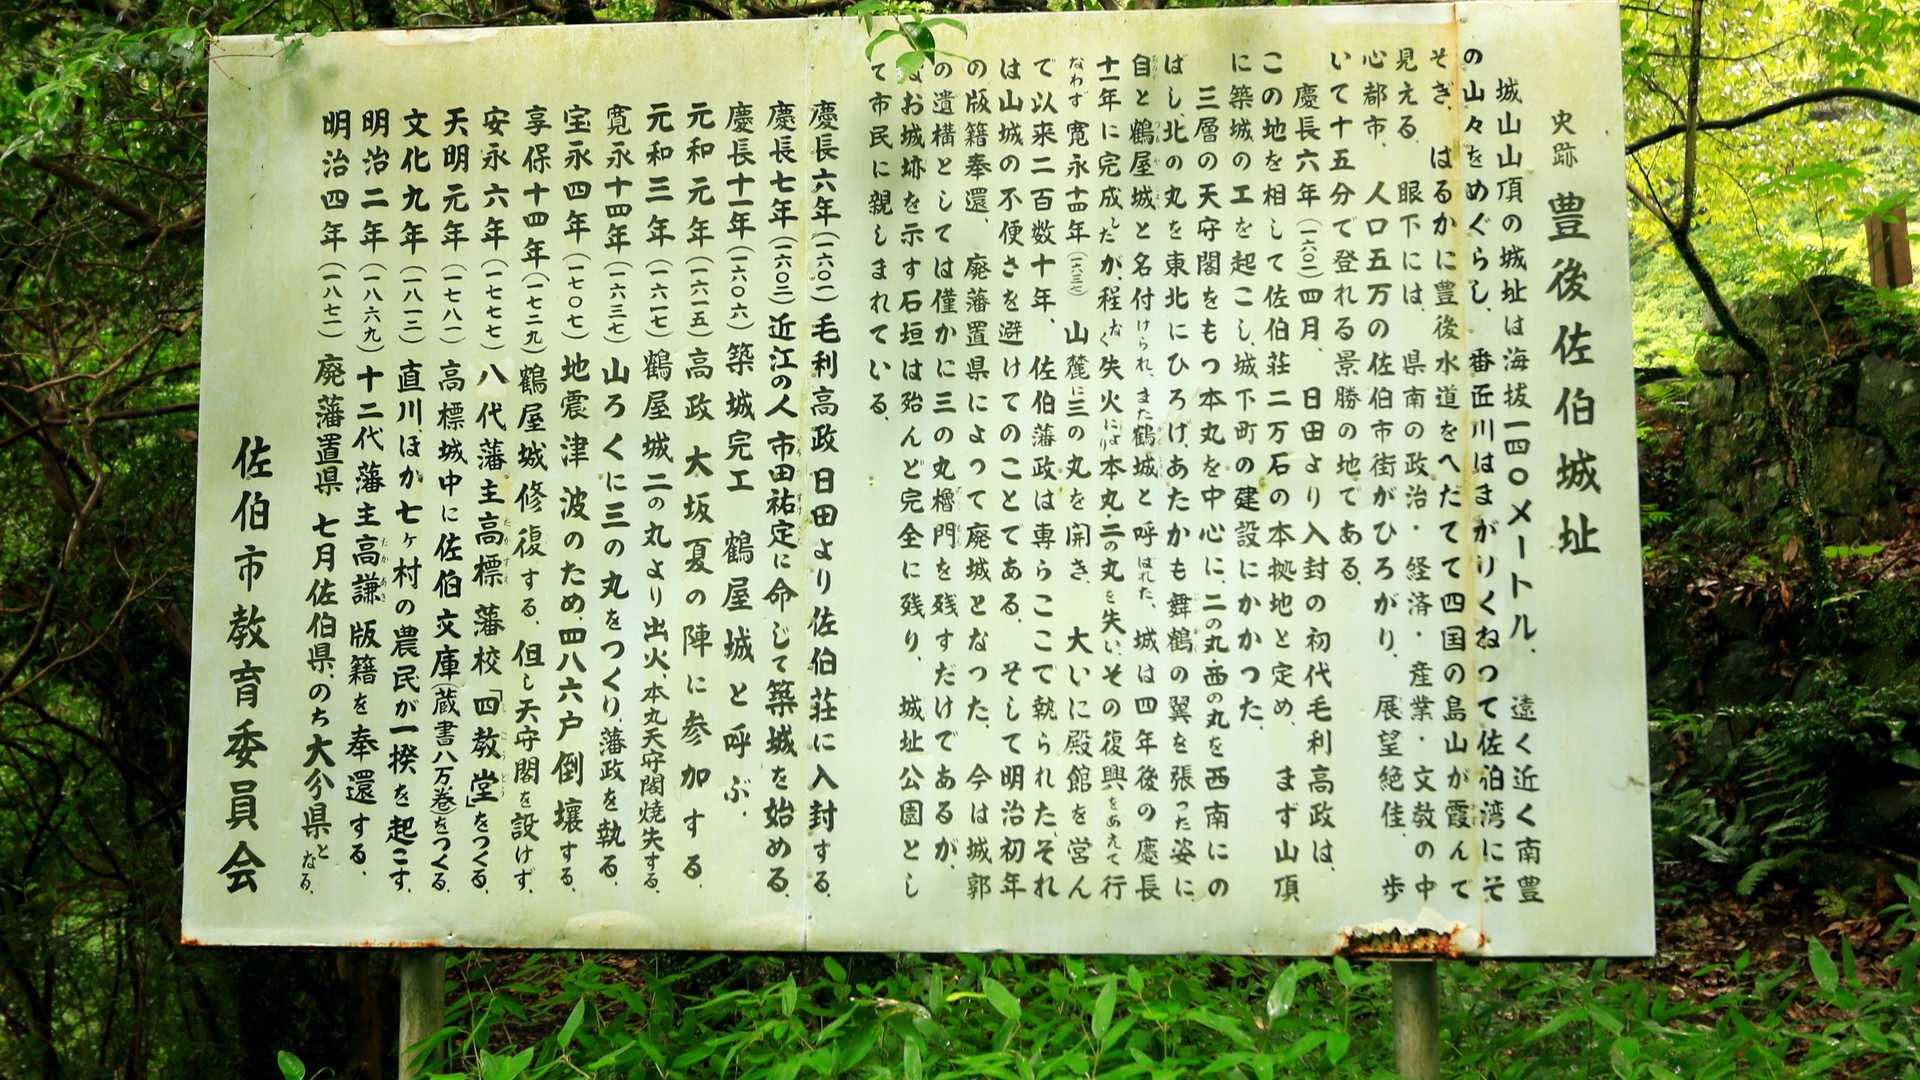 史跡 豊後佐伯城址
城山山頂の城址は海抜一四〇メートル、遠く近く南豊
の山々をめぐらし、番匠川はまがりくねって佐泊湾にそ
そぎ、はるかに豊後水道をへだてて四国の島山が霞んで
見える。眼下には、県南の政治・経済・産業・文教の中
心都市、人口五万の佐伯市街がひろがり、展望絶佳、歩
いて十五分で登れる景勝の地である。
慶長六年(一六〇一)四月、日田より入封の初代毛利高政は、
この地を相して佐伯荘二万石の本拠地と定め、まず山頂
に築城の工を起こし、城下町の建設にかかった。
三層の天守閣をもつ本丸を中心に、二の丸・西の丸を西南にの
ばし、北の丸を東北にひろげ、あたかも舞鶴の翼を張った姿に
自と鶴屋城と名付けられ、また鶴城と呼ばれた、城は四年後の慶長
十一年に完成したが、程なく失火により本丸・二の丸を失い、その復興をあえて行
なわず寛永十四年(一六三七)山麓に三の丸を開き、大いに殿館を営ん
で以来二百数十年、佐伯藩政は専らここで執られた、それ
は山城の不便さを避けてのことである。そして明治初年
の版籍奉還、廃藩置県によって廃城となった。今は城郭
の遺構としては僅かに三の丸櫓門を残すだけであるが、
なお城跡を示す石垣は殆んど完全に残り、城址公園とし
て市民に親しまれている。
慶長六年(一六〇一)毛利高政日田より佐伯荘に入封する。
慶長七年(一六〇二)近江の人市田祐定に命じて築城を始める。
慶長十一年(一六〇六)築城完工 鶴屋城と呼ぶ。
元和元年(一六一五)高政 大坂夏の陣に参加する。
元和三年(一六一七)鶴屋城二の丸より出火、本丸天守閣焼失する。
寛永十四年(一六三七)山ろくに三の丸をつくり、藩政を執る。
宝永四年(一七〇七)地震津波のため、四八六戸倒壊する。
享保十四年(一七二九)鶴屋城修復する。但し天守閣を設けず。
安永六年(一七七七)八代藩主高標 藩校「四教堂」をつくる。
天明元年(一七八一)高標城中に佐伯文庫(蔵書八万巻)をつくる。
文化九年(一八一二)直川ほか七ヶ村の農民が一揆を起こす。
明治二年(一八六九)十二代藩主高謙 版籍を奉還する。
明治四年(一八七一)廃藩置県 七月佐伯県、のち大分県となる。
佐伯市教育委員会